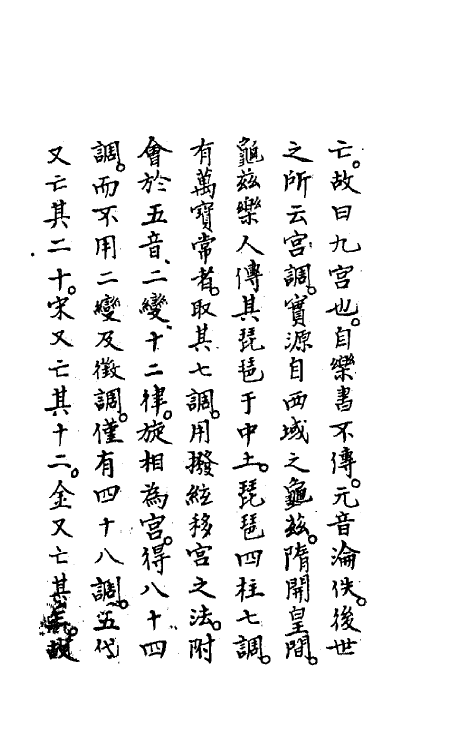 亡。故曰九宫也。自樂書不傳。元音淪佚。後世
之所云宫調。實源自西域之龜兹。隋開皇間。
龜兹樂人傳其琵琶于中土。琵琶四柱七調。
有萬寶常者。取其七調。用撥絃移宫之法。附
會於五音、二變、十二律。旋相為宫。得八十四
調。而不用二變及徵調。僅有四十八調。五代
又亡其二十。宋又亡其十二。金又亡其